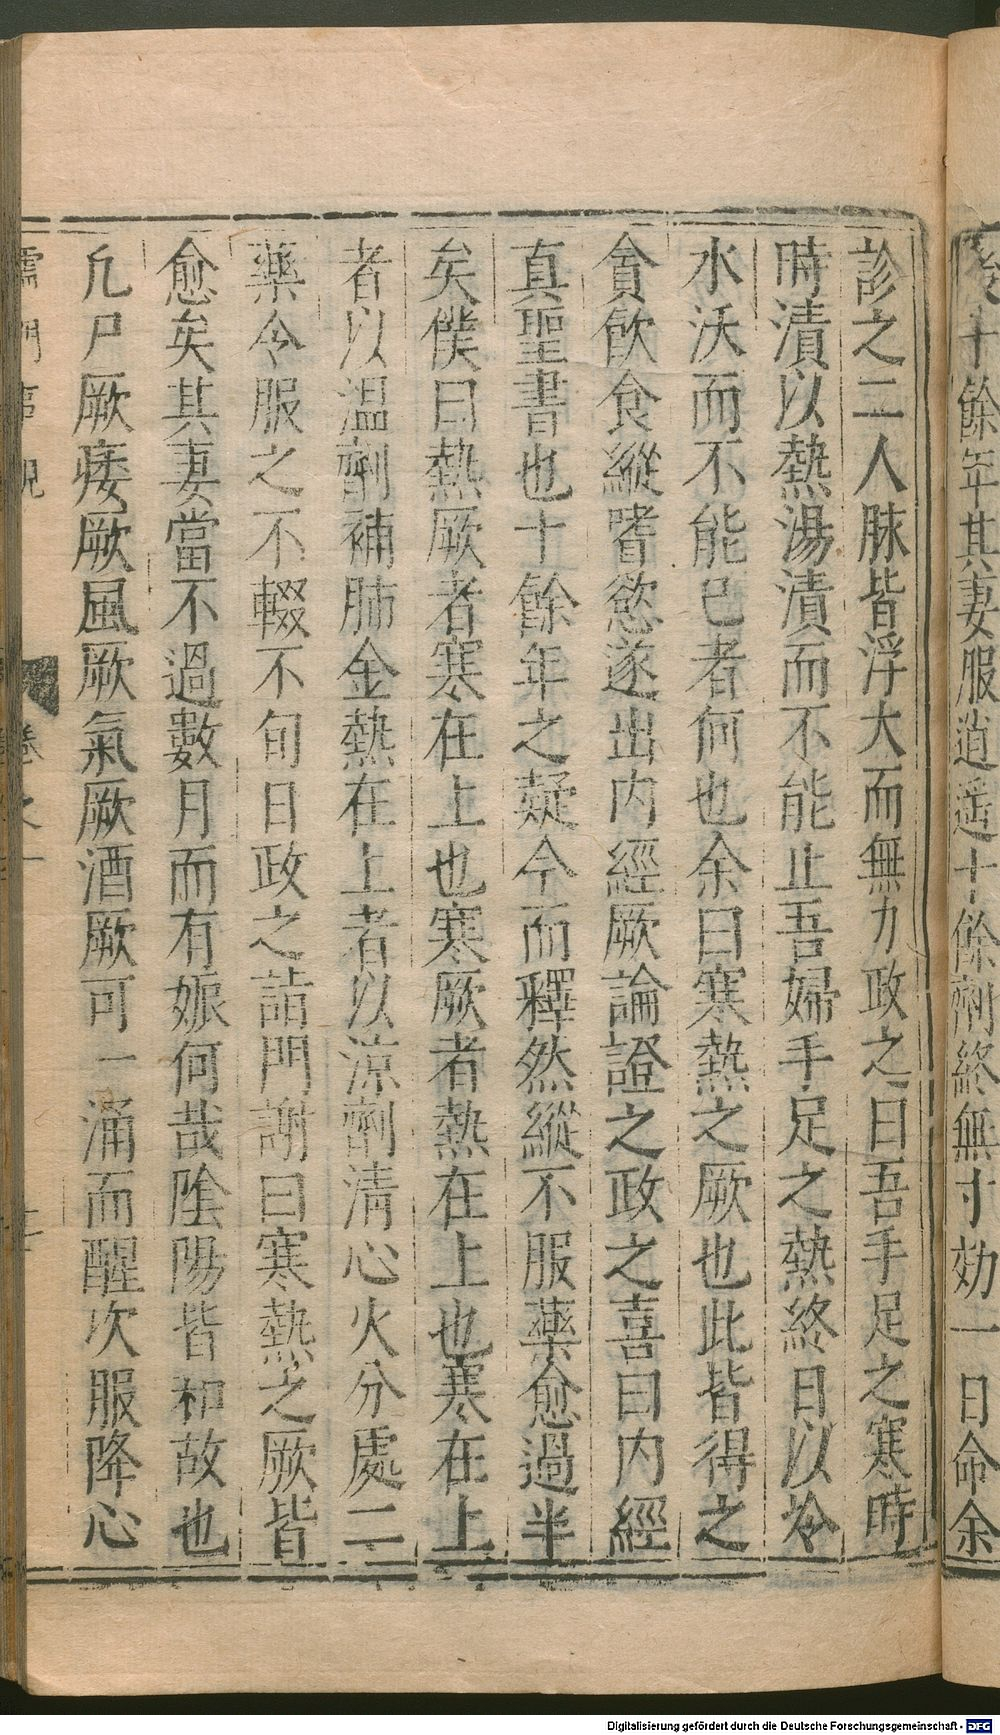 後十餘年其妻服逍遥十餘劑終無寸効一日命余
診之二人脉皆浮大而無力政之曰吾手足之寒時
時漬以熱湯漬而不能止吾婦手足之熱終日以冷
水沃而不能已者何也余曰寒熱之厥也此皆得之
貪飲食縱嗜慾遂出内經厥論證之政之喜曰内經
真聖書也十餘年之疑今而釋然縱不服藥愈過半
矣僕曰熱厥者寒在上也寒厥者熱在上也寒在上
者以温劑補肺金熱在上者以凉劑清心火分處二
藥令服之不輟不旬日政之詣門謝曰寒熱之厥皆
愈矣其妻當不過數月而有娠何哉隂陽皆和故也
凡尸厥痿厥風厥氣厥酒厥可一涌而醒次服降心
儒門事親 卷之一
Digitalisierung gefördert durch die Deutsche Forschungsgemeinschaft - DFG